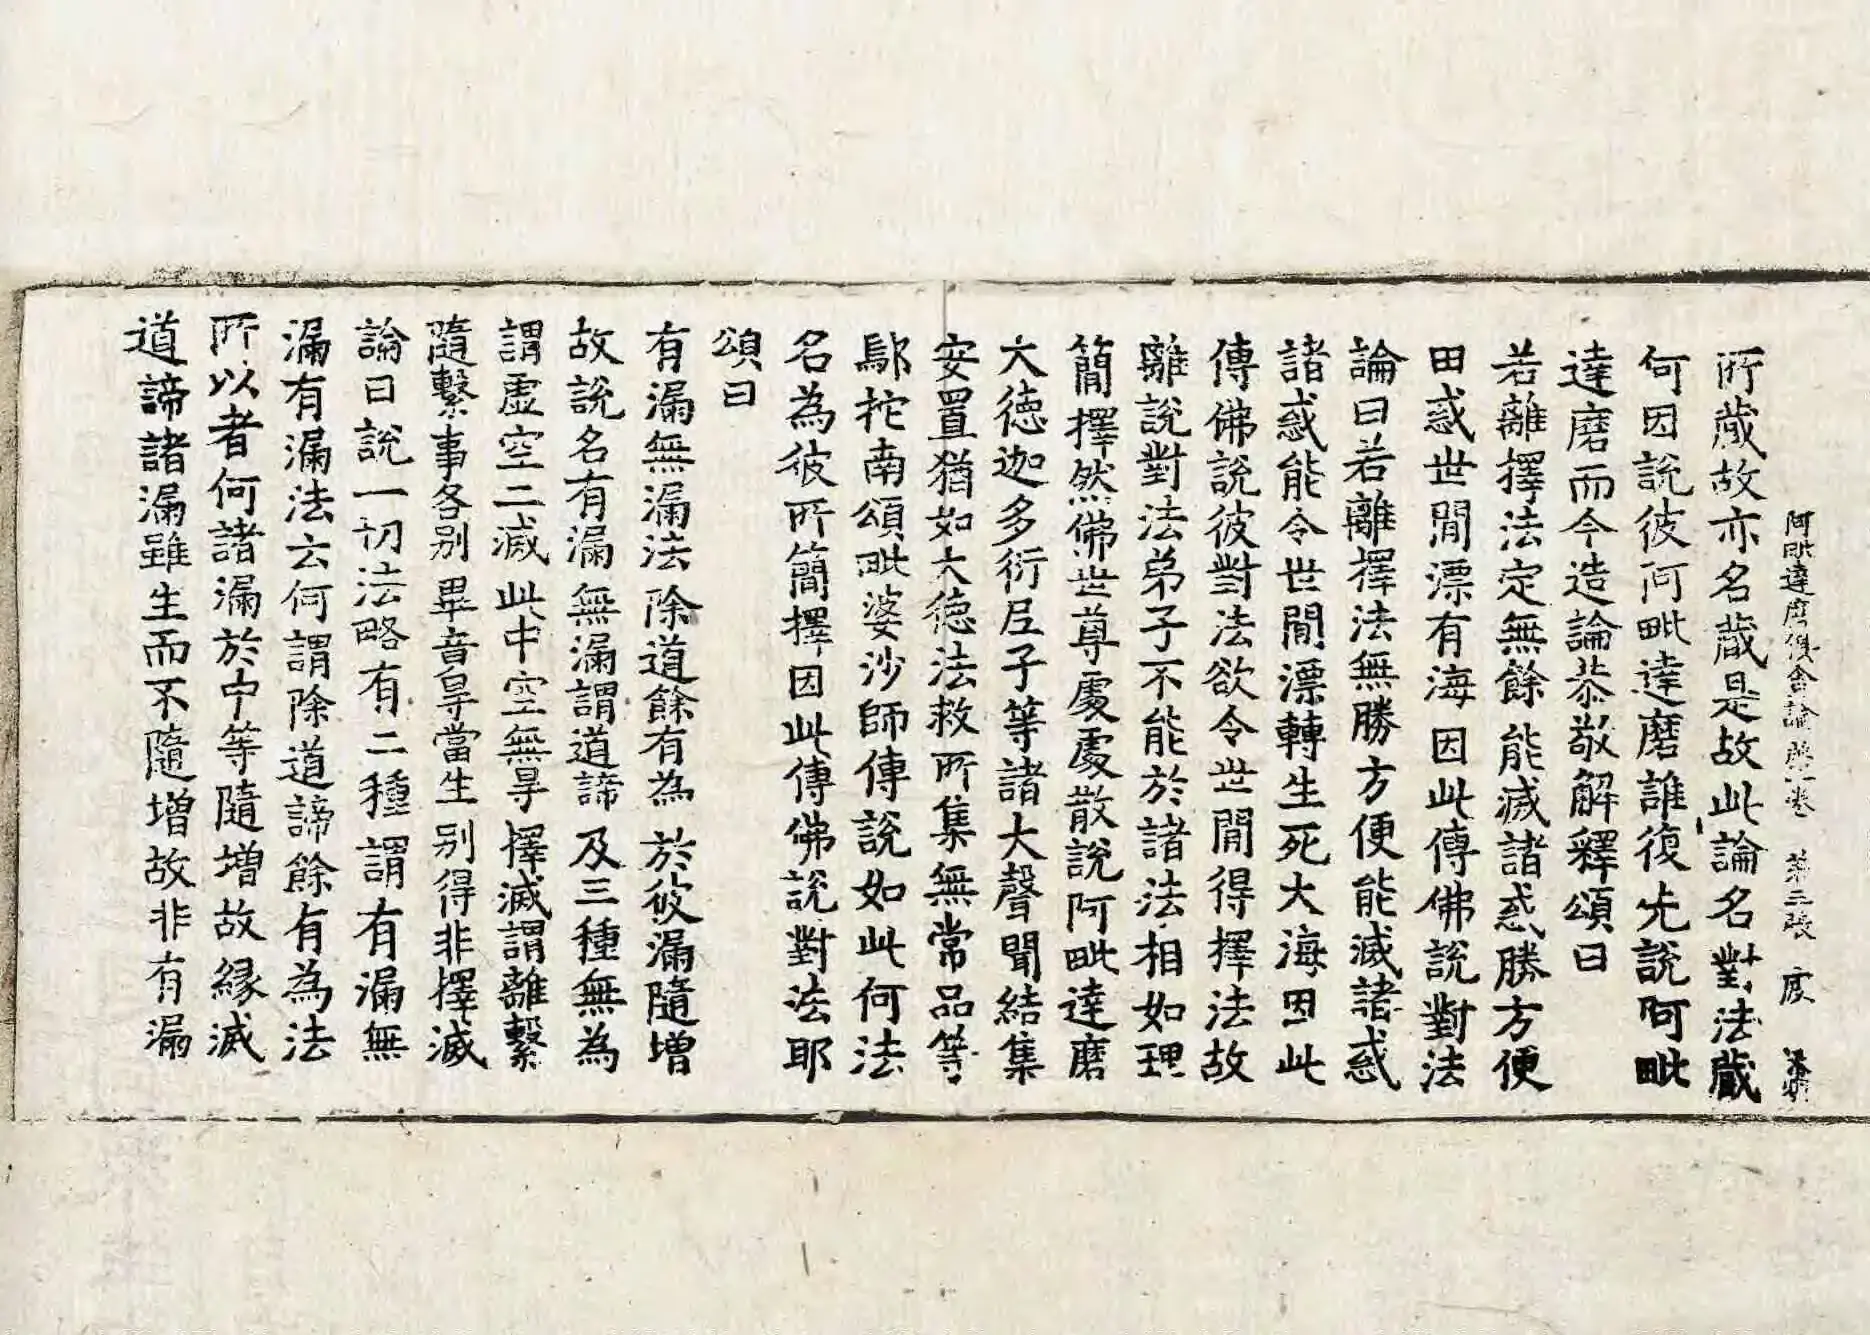 阿毗達磨俱舍論卷 第三張 度
所蔵故亦名蔵是故此論名對法蔵
何因說彼阿毗達磨誰復先說阿毗
達磨而今造論恭敬解釋頌曰
若離擇法定無餘 能滅諸惑勝方便
由惑世間漂有海 因此傳佛說對法
論曰若離擇法無勝方便能滅諸惑
諸惑能令世間漂轉生死大海因此
傳佛說彼對法欲令世間得擇法故
離說對法弟子不能於諸法相如理
簡擇然佛世尊處處散說阿毗達磨
大德迦多衍尼子等諸大聲聞結集
安置猶如大德法救所集無常品等
鄔拕南頌毗婆沙師傳說如此何法
名為彼所簡擇因此傳佛說對法耶
頌曰
有漏無漏法 除道餘有為 於彼漏隨增
故說名有漏 無漏謂道諦 及三種無為
謂虛空二滅 此中空無㝵 擇滅謂離繫
隨繫事各別 畢竟㝵當生 別得非擇滅
論曰說一切法略有二種謂有漏無
漏有漏法云何謂除道諦餘有為法
所以者何諸漏於中等隨增故縁滅
道諦諸漏雖生而不隨增故非有漏